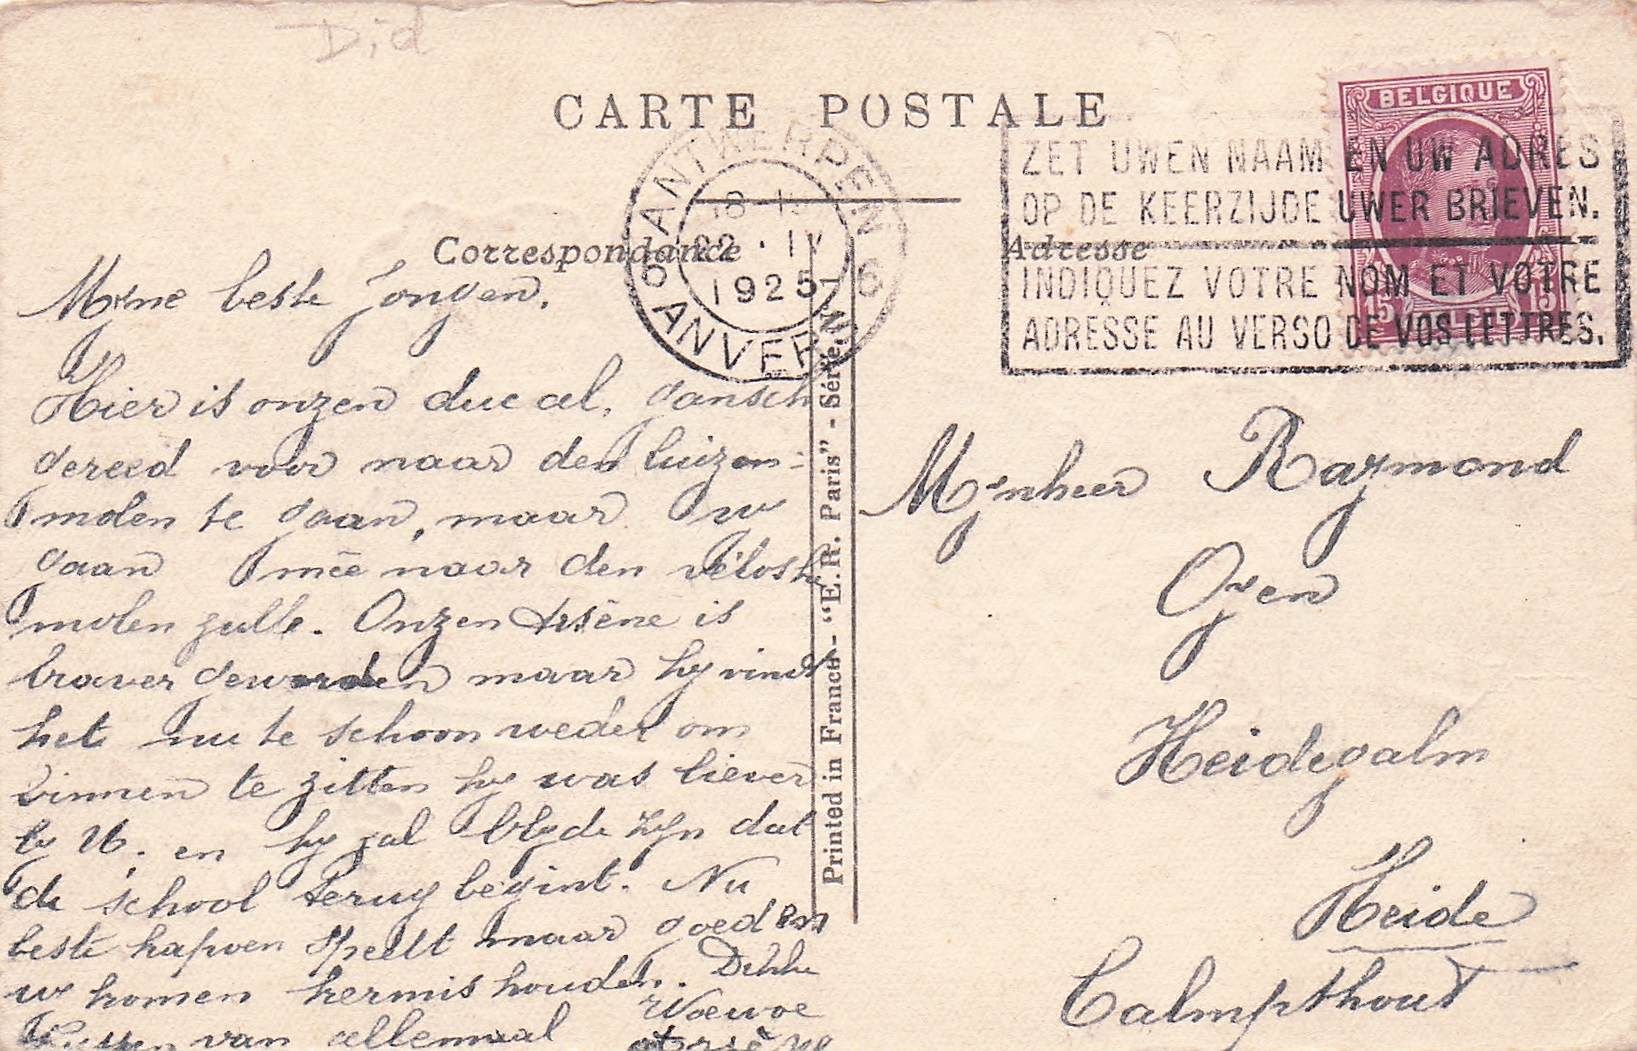 Did
CARTE POSTALE
BELGIQUE
ANTWERPEN 6
22 · IV
1925
6 ANVERS
ZET UWEN NAAM EN UW ADRES
OP DE KEERZIJDE UWER BRIEVEN.
INDIQUEZ VOTRE NOM ET VOTRE
ADRESSE AU VERSO DE VOS LETTRES.
15 15
Correspondance
Adresse
Myne beste Jongen.
Hier is onzen duc al, gansch
gereed voor naar den luizen-
molen te gaan, maar w
gaan mêe naar den
molen zulle. Onzen Arsène is
braver geworden maar hy vindt
het nu te schoon weder om
binnen te zitten hy was liever
by U. en hy zal blyde zyn dat
de school terug begint. Nu
beste kapoen speelt maar goed en
w komen kermis houden. Dikke
van allemaal Woewoe
Arsène
Printed in France - "E.R. Paris" - Série
Mynheer Raymond
Oyen
Heidegalm
Heide
Calmpthout